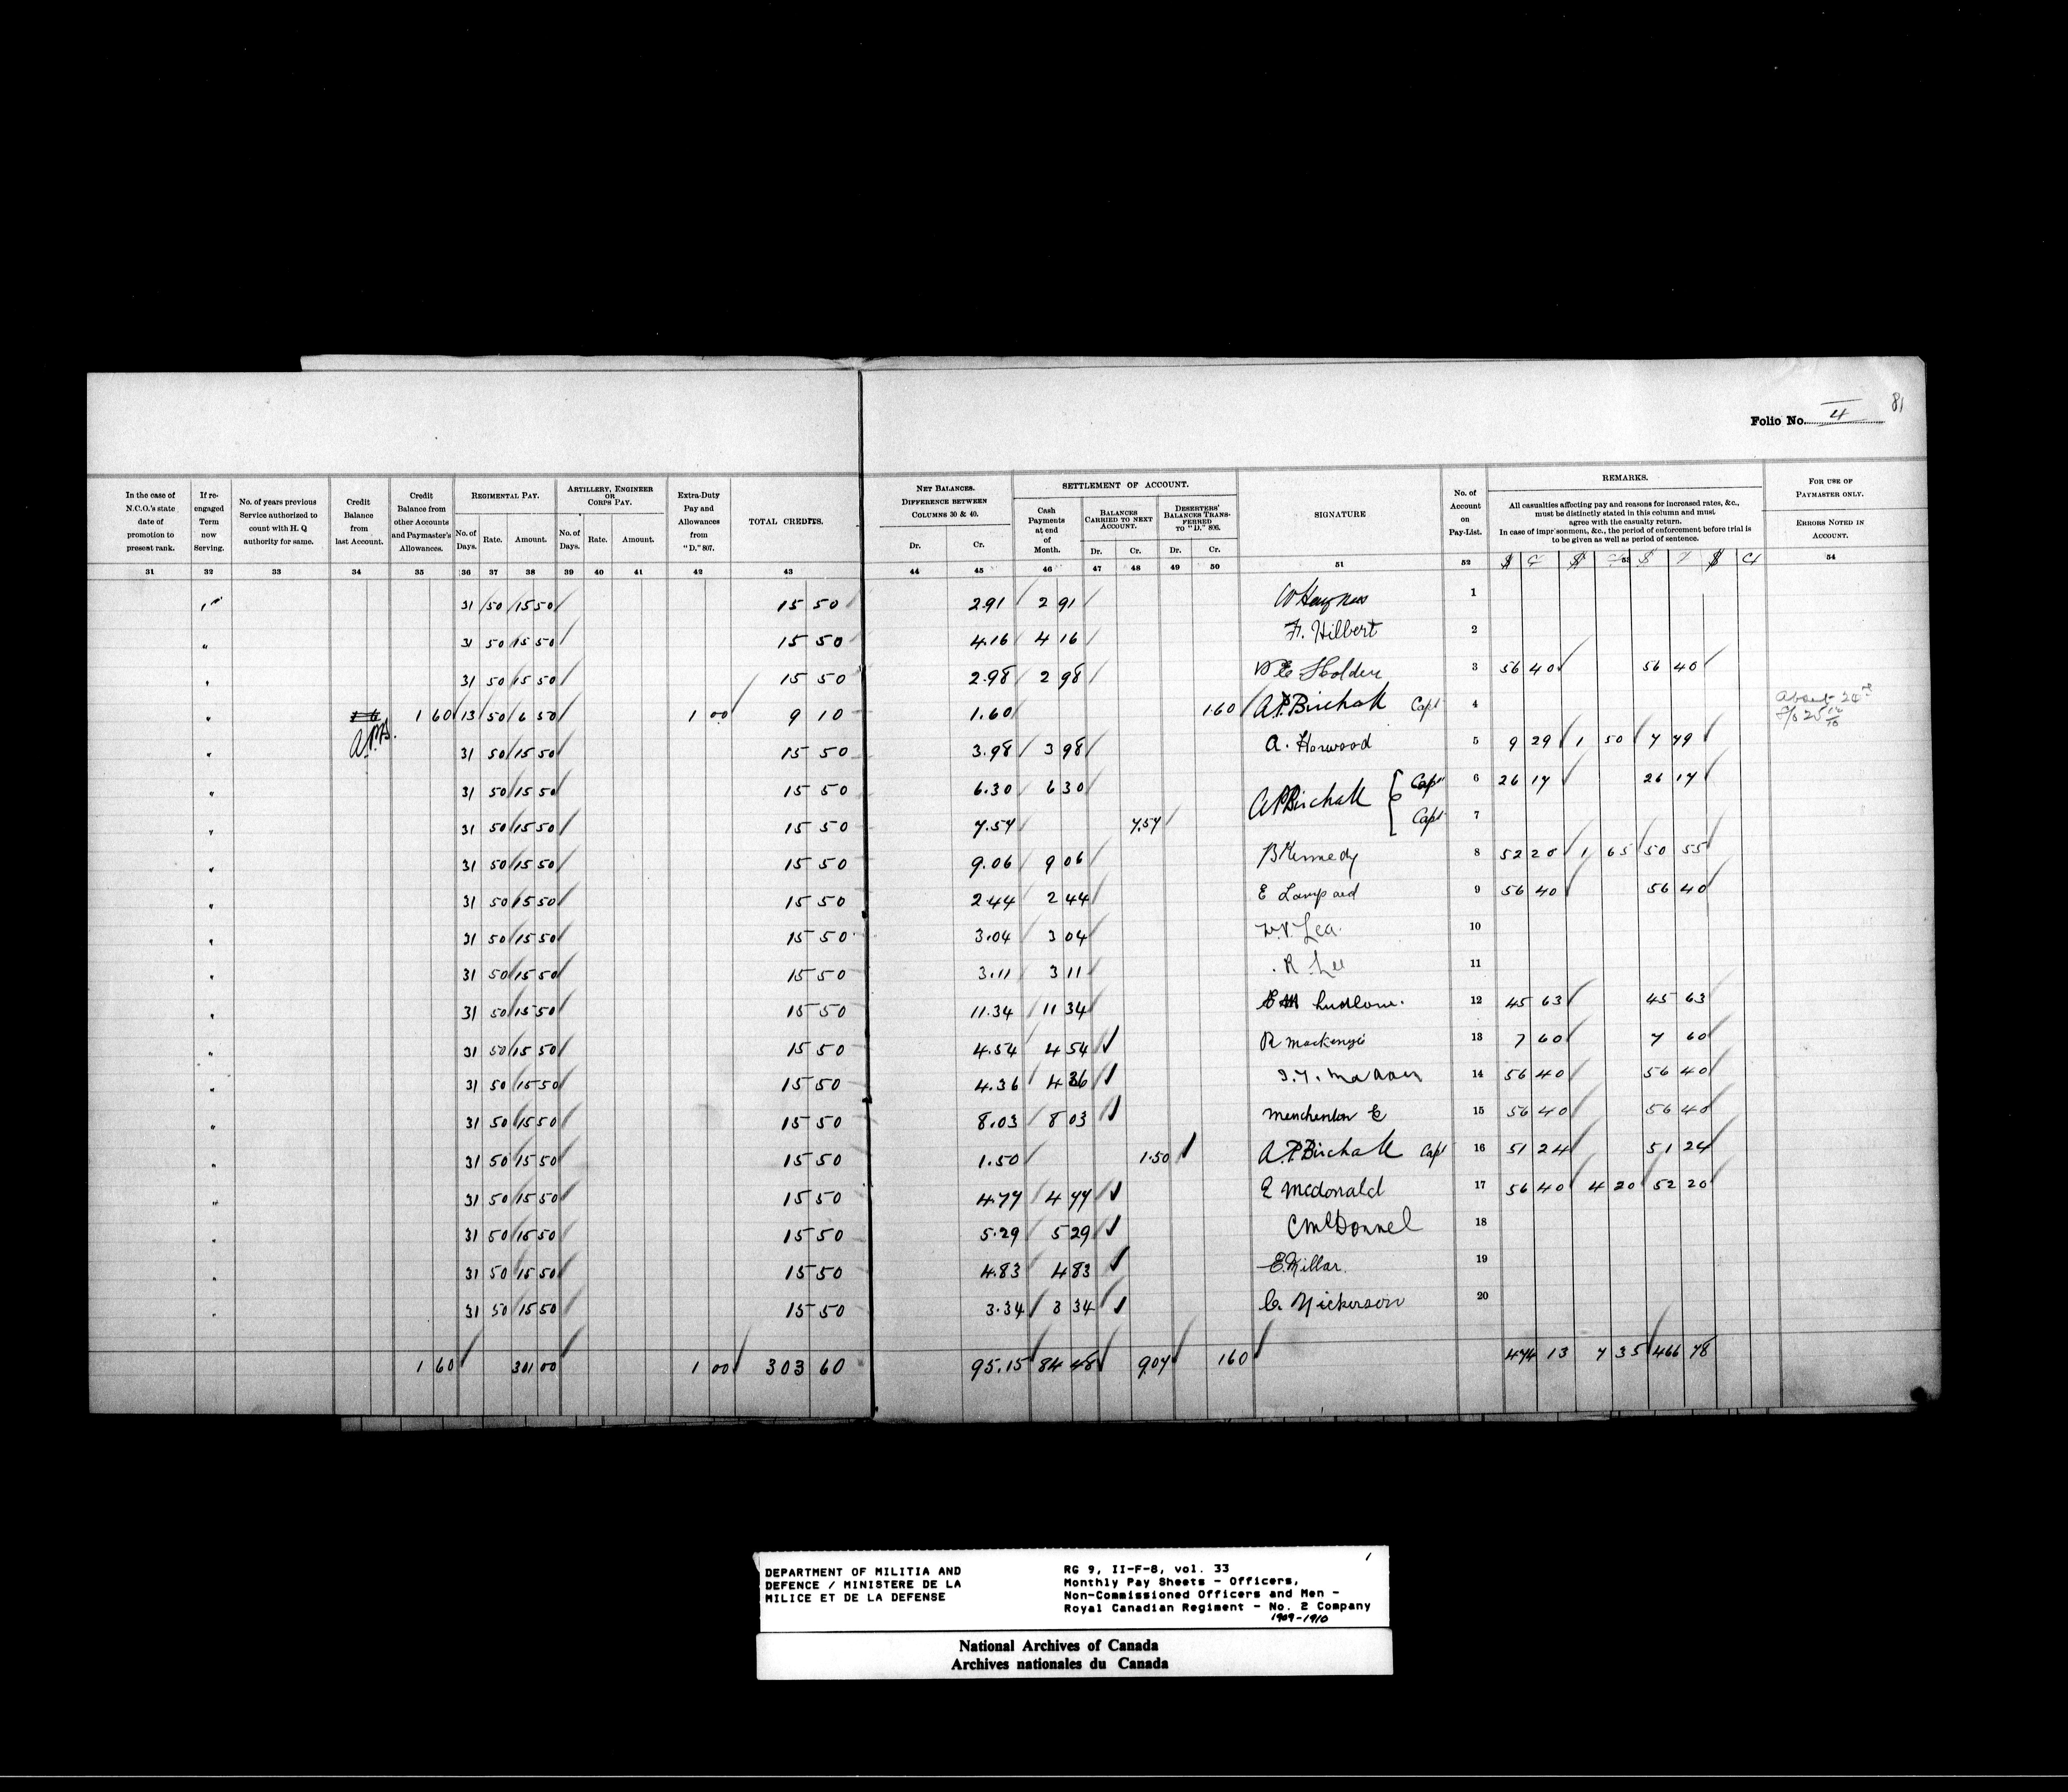 81
Folio No. 4
In the case of N.C.O.'s state date of promotion to present rank.
If re-engaged Term now Serving.
No. of years previous Service authorized to count with H. Q authority for same.
Credit Balance from last Account.
Credit Balance from other Accounts and Paymaster's Allowances.
REGIMENTAL PAY.
No. of Days. Rate. Amount.
ARTILLERY, ENGINEER OR CORPS PAY.
No. of Days. Rate. Amount.
Extra-Duty Pay and Allowances from "D." 807.
TOTAL CREDITS.
NET BALANCES. DIFFERENCE BETWEEN COLUMNS 30 & 40.
Dr. Cr.
SETTLEMENT OF ACCOUNT.
Cash Payments at end of Month.
BALANCES CARRIED TO NEXT ACCOUNT.
Dr. Cr.
DESERTERS' BALANCES TRANSFERRED TO "D." 806.
Dr. Cr.
SIGNATURE
No. of Account on Pay-List.
REMARKS.
All casualties affecting pay and reasons for increased rates, &c., must be distinctly stated in this column and must agree with the casualty return.
In case of imprisonment, &c., the period of enforcement before trial is to be given as well as period of sentence.
FOR USE OF PAYMASTER ONLY.
ERRORS NOTED IN ACCOUNT.
31 32 33 34 35 36 37 38 39 40 41 42 43 44 45 46 47 48 49 50 51 52 53 54
31 50 15 50 15 50 2.91 2 91 W Haynes 1
" 31 50 15 50 15 50 4.16 4 16 F. Hilbert 2
" 31 50 15 50 15 50 2.98 2 98 W E Holden 3 56 40 56 40
" 1 60 13 50 6 50 1 00 9 10 1.60 1 60 A.P.Birchall Capt 4
A.P.B.
" 31 50 15 50 15 50 3.98 3 98 A. Horwood 5 9 29 1 50 7 79
" 31 50 15 50 15 50 6.30 6 30 APBirchall Capt 6 26 17 26 17
" 31 50 15 50 15 50 7.57 7.57 Capt 7
" 31 50 15 50 15 50 9.06 9 06 B Kennedy 8 52 20 1 65 50 55
" 31 50 15 50 15 50 2.44 2 44 E Lampard 9 56 40 56 40
" 31 50 15 50 15 50 3.04 3 04 Lea 10
" 31 50 15 50 15 50 3.11 3 11 R Lee 11
" 31 50 15 50 15 50 11.34 11 34 Ludlow. 12 45 63 45 63
" 31 50 15 50 15 50 4.54 4 54 R Mackenzie 13 7 60 7 60
" 31 50 15 50 15 50 4.36 4 36 14 56 40 56 40
" 31 50 15 50 15 50 8.03 8 03 Menchenton E 15 56 40 56 40
" 31 50 15 50 15 50 1.50 1.50 A.P.Birchall Capt 16 51 24 51 24
" 31 50 15 50 15 50 4.77 4 77 E Mcdonald 17 56 40 4 20 52 20
" 31 50 15 50 15 50 5.29 5 29 C McDonnel 18
" 31 50 15 50 15 50 4.83 4 83 E. Millar. 19
" 31 50 15 50 15 50 3.34 3 34 C. Nickerson 20
1 60 301 00 1 00 303 60 95.15 84 48 9 07 1 60 474 13 7 35 466 78
DEPARTMENT OF MILITIA AND
DEFENCE / MINISTERE DE LA
MILICE ET DE LA DEFENSE
RG 9, II-F-8, vol. 33
Monthly Pay Sheets - Officers,
Non-Commissioned Officers and Men -
Royal Canadian Regiment - No. 2 Company
1909-1910
National Archives of Canada
Archives nationales du Canada